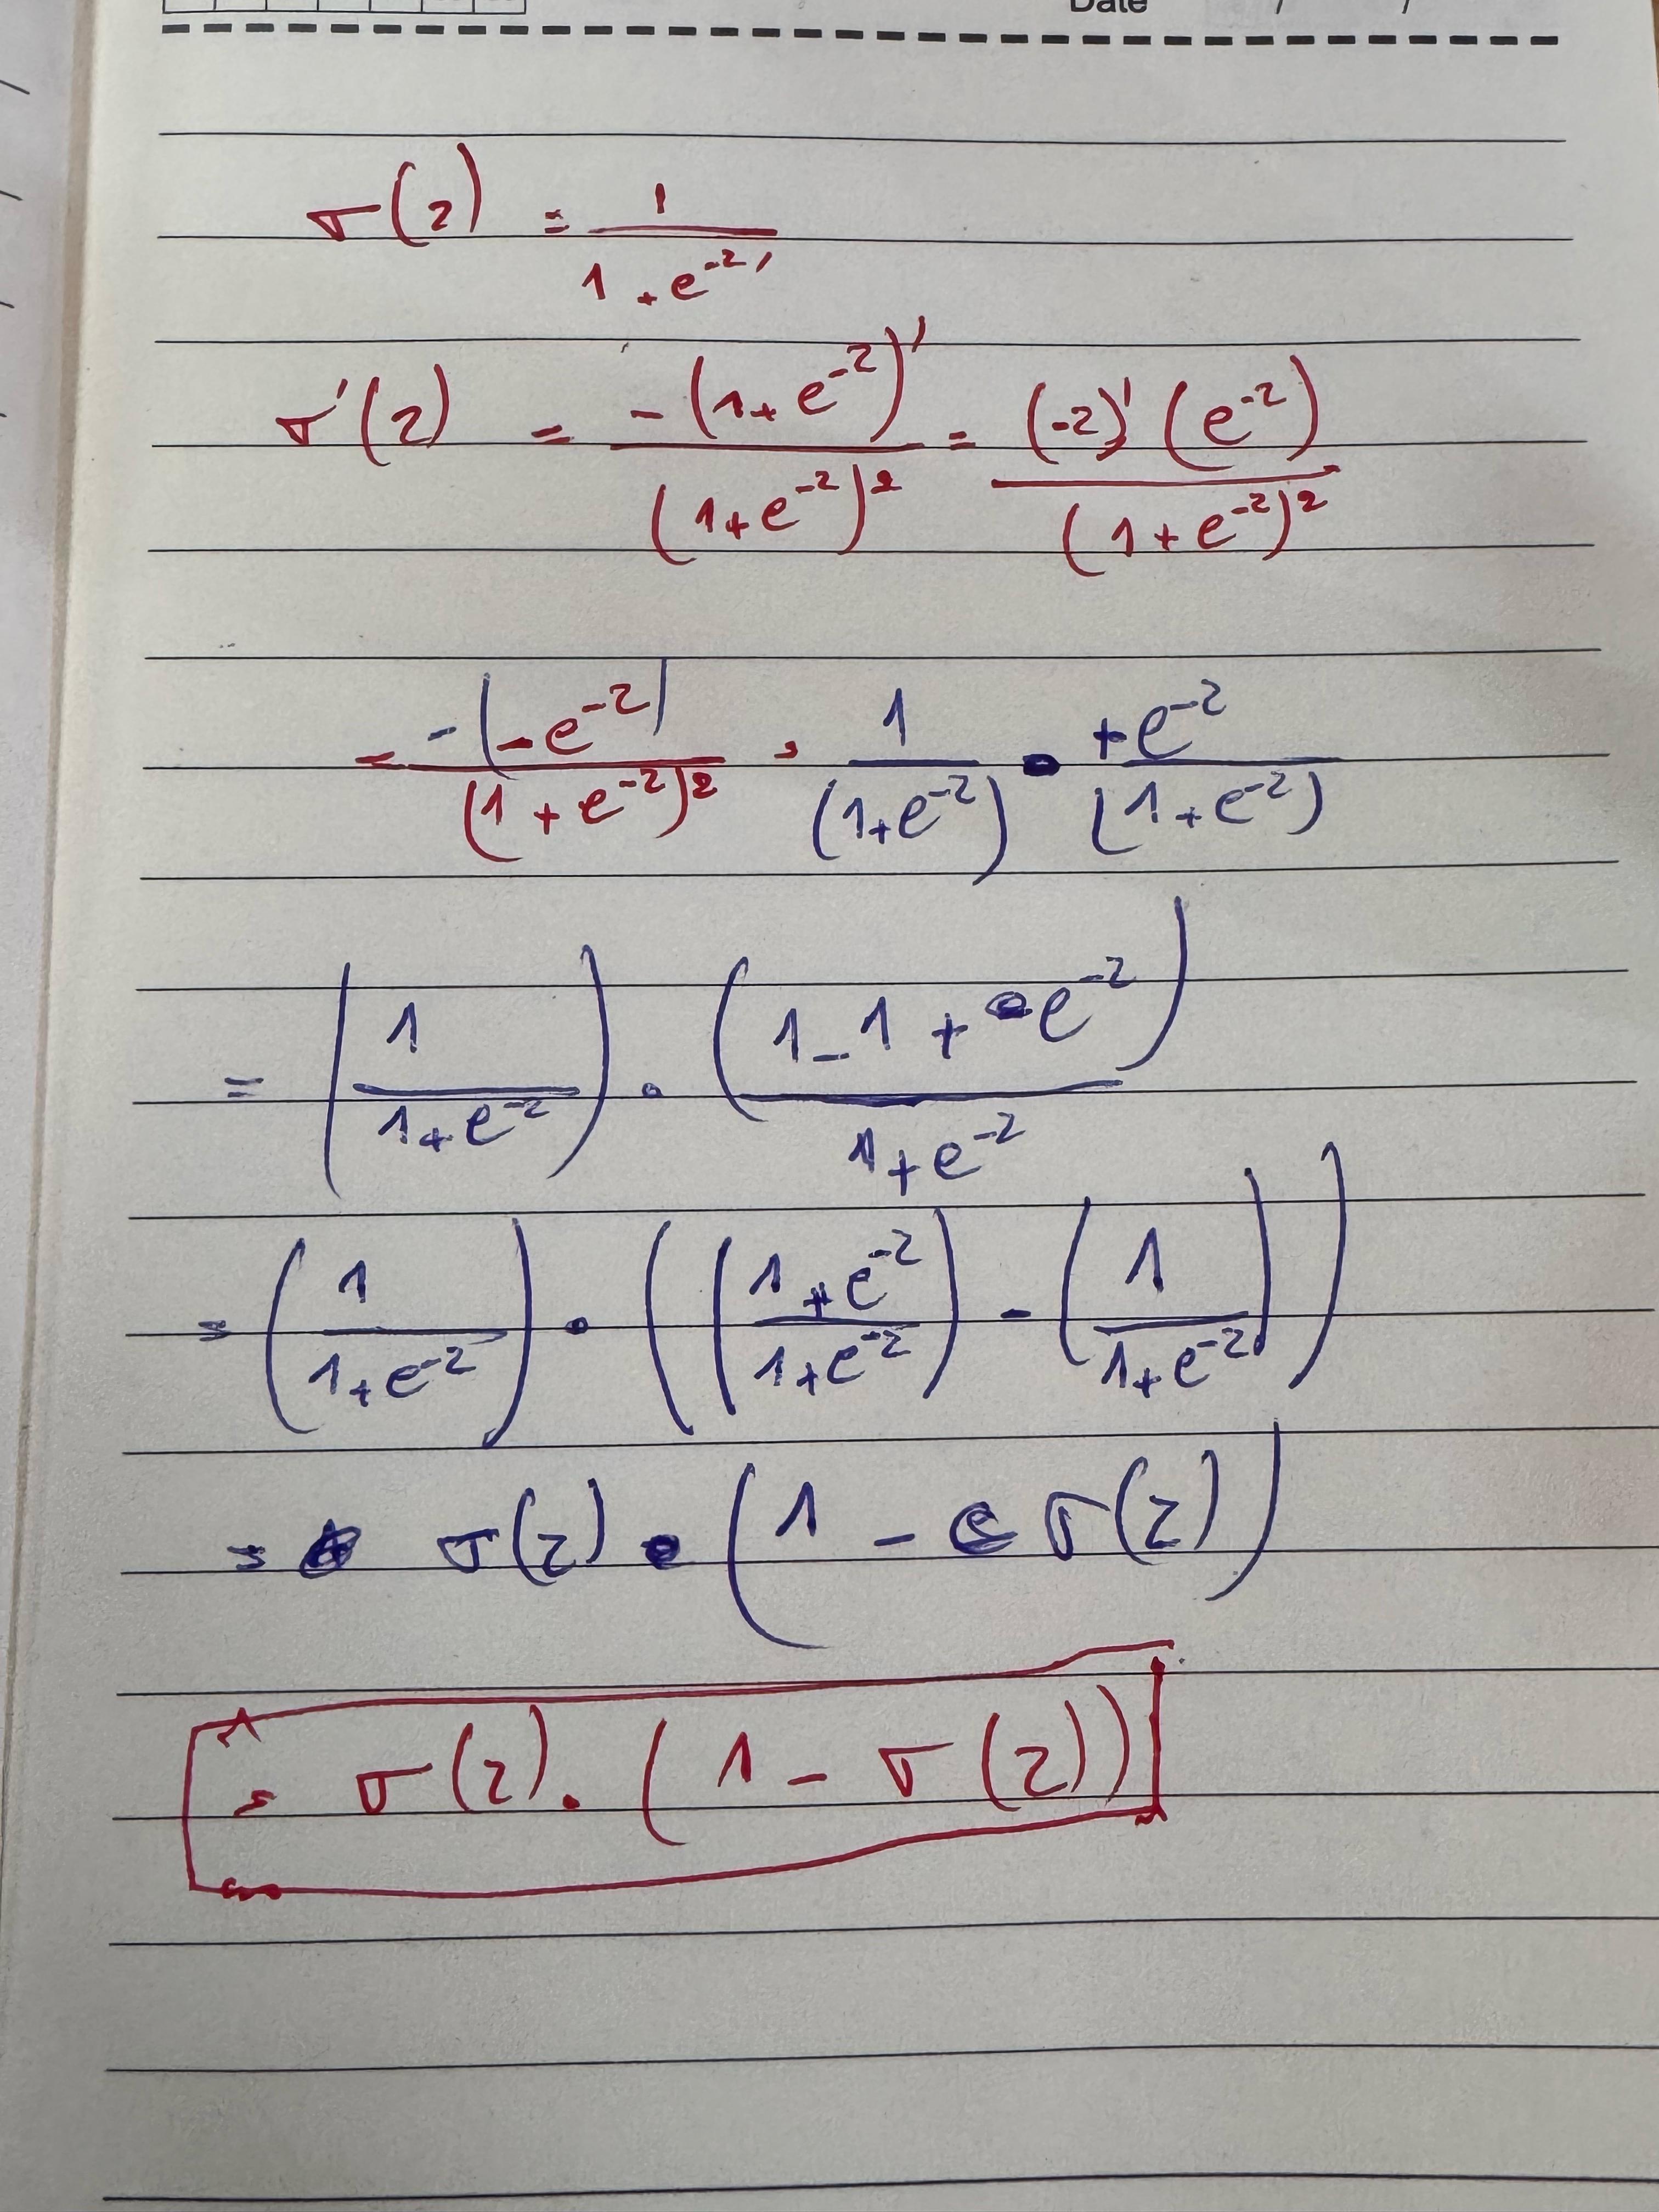 Date / /
σ(z) = 1 / (1 + e^-z)
σ'(z) = -(1 + e^-z)' / (1 + e^-z)^2 = (-z)' (e^-z) / (1 + e^-z)^2
= -(-e^-z) / (1 + e^-z)^2 = 1 / (1 + e^-z) • +e^-z / (1 + e^-z)
= (1 / (1 + e^-z)) • ((1 - 1 + e^-z) / (1 + e^-z))
= (1 / (1 + e^-z)) • (((1 + e^-z) / (1 + e^-z)) - (1 / (1 + e^-z)))
= σ(z) • (1 - σ(z))
= σ(z) . (1 - σ(z))